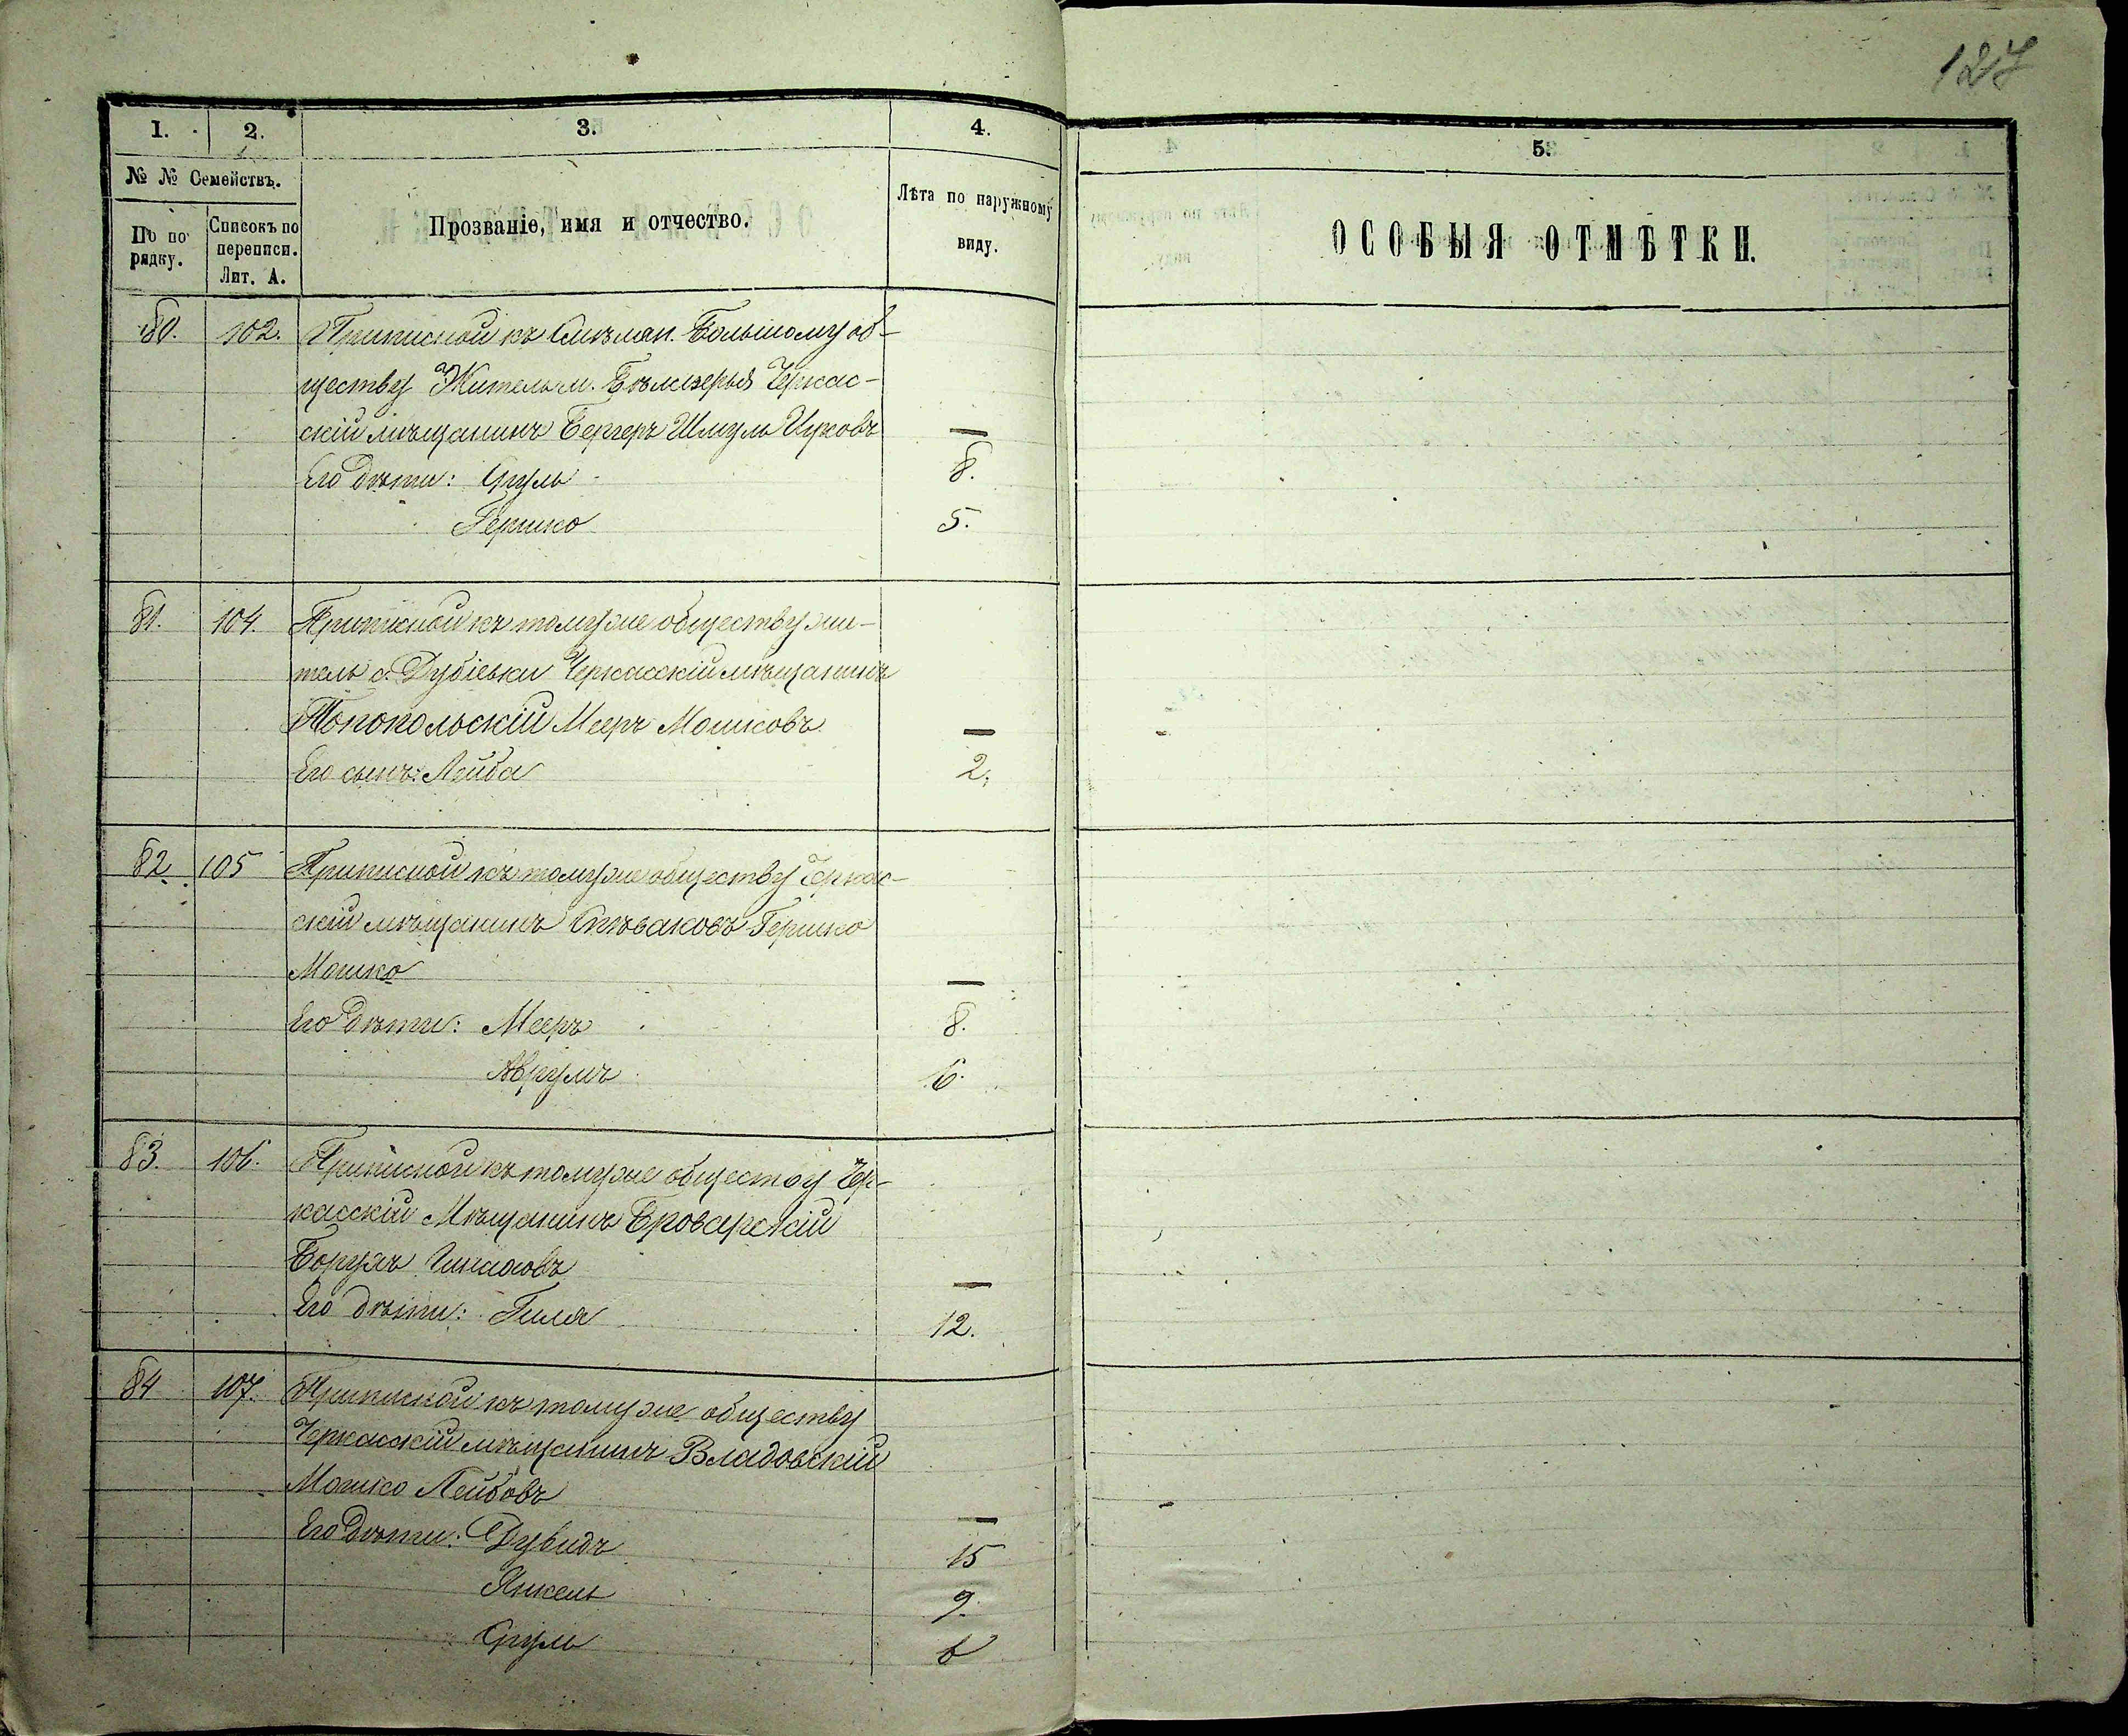 127
1. 2. 3. 4. 5.
№ № Семействъ.
По порядку. Списокъ по переписи. Лит. А.
Прозваніе, имя и отчество.
Лѣта по наружному виду.
ОСОБЫЯ ОТМѢТКИ.
80. 102. Приписной къ Смѣлян. Большому об-
ществу Житель м. Бѣлозерья Черкас-
скій мѣщанинъ Бергеръ Шмуль Ицковъ —
Его дѣти: Сруль 8.
Гершко 5.
81. 104. Приписной къ томуже обществу жи-
тель с. Дубіевки Черкасскій мѣщанинъ
Топопольскій Мееръ Мошковъ —
Его сынъ: Лейба 2.
82. 105 Приписной къ томуже обществу Черкас-
скій мѣщанинъ Спѣваковъ Гершко
Мошко —
Его дѣти: Мееръ 8.
Аврумъ 6.
83. 106. Приписной къ томуже обществу Чер-
касскій Мѣщанинъ Броварскій
Борухъ —
Его дѣти: Гиля 12.
84 107. Приписной къ томуже обществу
Черкасскій мѣщанинъ Владовскій
Мошко Лейбовъ —
Его дѣти: Дувидъ 15
Янкель 9.
Сруль 6